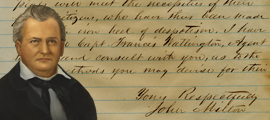 over meet the necessities of their
citizens, who have thus been made
bed of despotism. I have
Capt. Francis Watlington, Agent
and consult with you, as to the
you may devise for their
Very Respectfully
John Milton